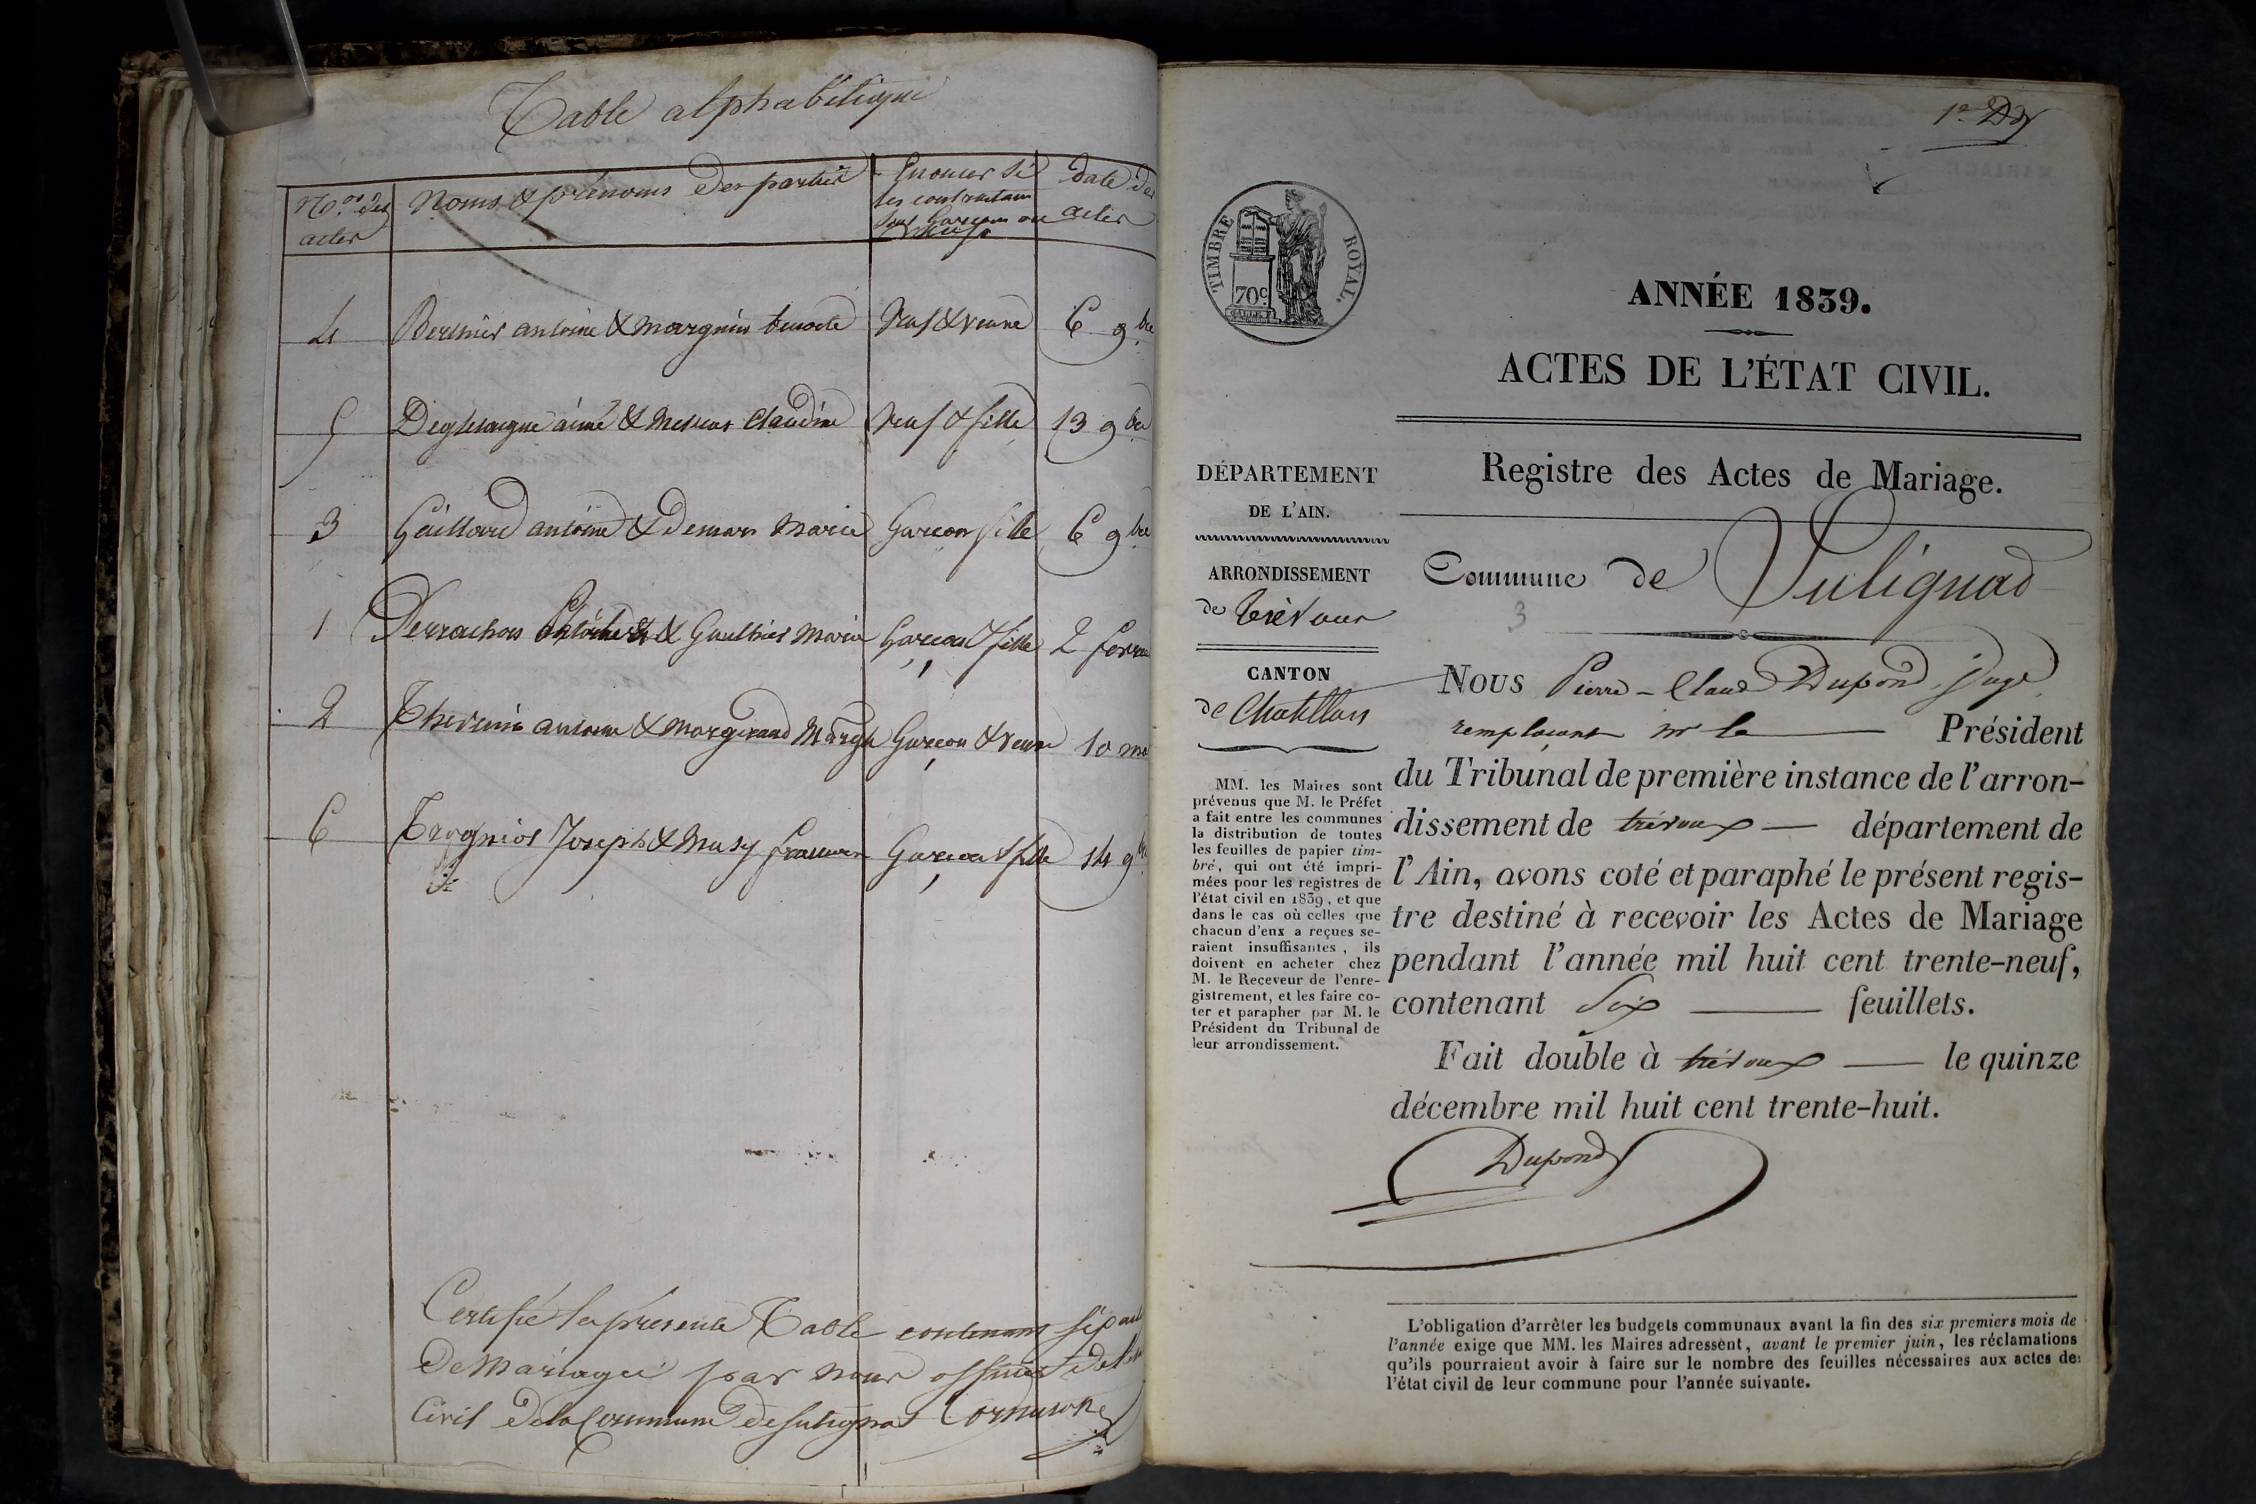 Table alphabétique
Nos des
actes
Noms & prénoms des parties
Enoncer si
les contractans
sont Garçons ou
Veufs
date des
actes
4 Berthier antoine & Marguin benoite Veuf & veuve 6 9bre
5 aimé & Claudine Veuf & fille 13 9bre
3 Gaillard antoine & Demars Marie Garçon fille 6 9bre
1 Perrachon & Gauthier Marie Garçon & fille 2
2 Thevenin antoine & Margerand Garçon & veuve 10
6 Joseph & Musy Garçon & fille 14 9
Certifié la présente Table contenant
De Mariages par nous officier
Civil De la Commune de Suligna
1er
TIMBRE ROYAL.
70c
ANNÉE 1839.
ACTES DE L'ÉTAT CIVIL.
DÉPARTEMENT
DE L'AIN.
ARRONDISSEMENT
de Trévoux
CANTON
de Chatillon
MM. les Maires sont
prévenus que M. le Préfet
a fait entre les communes
la distribution de toutes
les feuilles de papier tim-
bré, qui ont été impri-
mées pour les registres de
l'état civil en 1839, et que
dans le cas où celles que
chacun d'eux a reçues se-
raient insuffisantes, ils
doivent en acheter chez
M. le Receveur de l'enre-
gistrement, et les faire co-
ter et parapher par M. le
Président du Tribunal de
leur arrondissement.
Registre des Actes de Mariage.
Commune de Sulignad
3
Nous Pierre-Claude Dupond, juge
remplaçant mr le Président
du Tribunal de première instance de l'arron-
dissement de trévoux département de
l'Ain, avons coté et paraphé le présent regis-
tre destiné à recevoir les Actes de Mariage
pendant l'année mil huit cent trente-neuf,
contenant Six feuillets.
Fait double à trévoux le quinze
décembre mil huit cent trente-huit.
Dupond
L'obligation d'arrêter les budgets communaux avant la fin des six premiers mois de
l'année exige que MM. les Maires adressent, avant le premier juin, les réclamations
qu'ils pourraient avoir à faire sur le nombre des feuilles nécessaires aux actes de
l'état civil de leur commune pour l'année suivante.